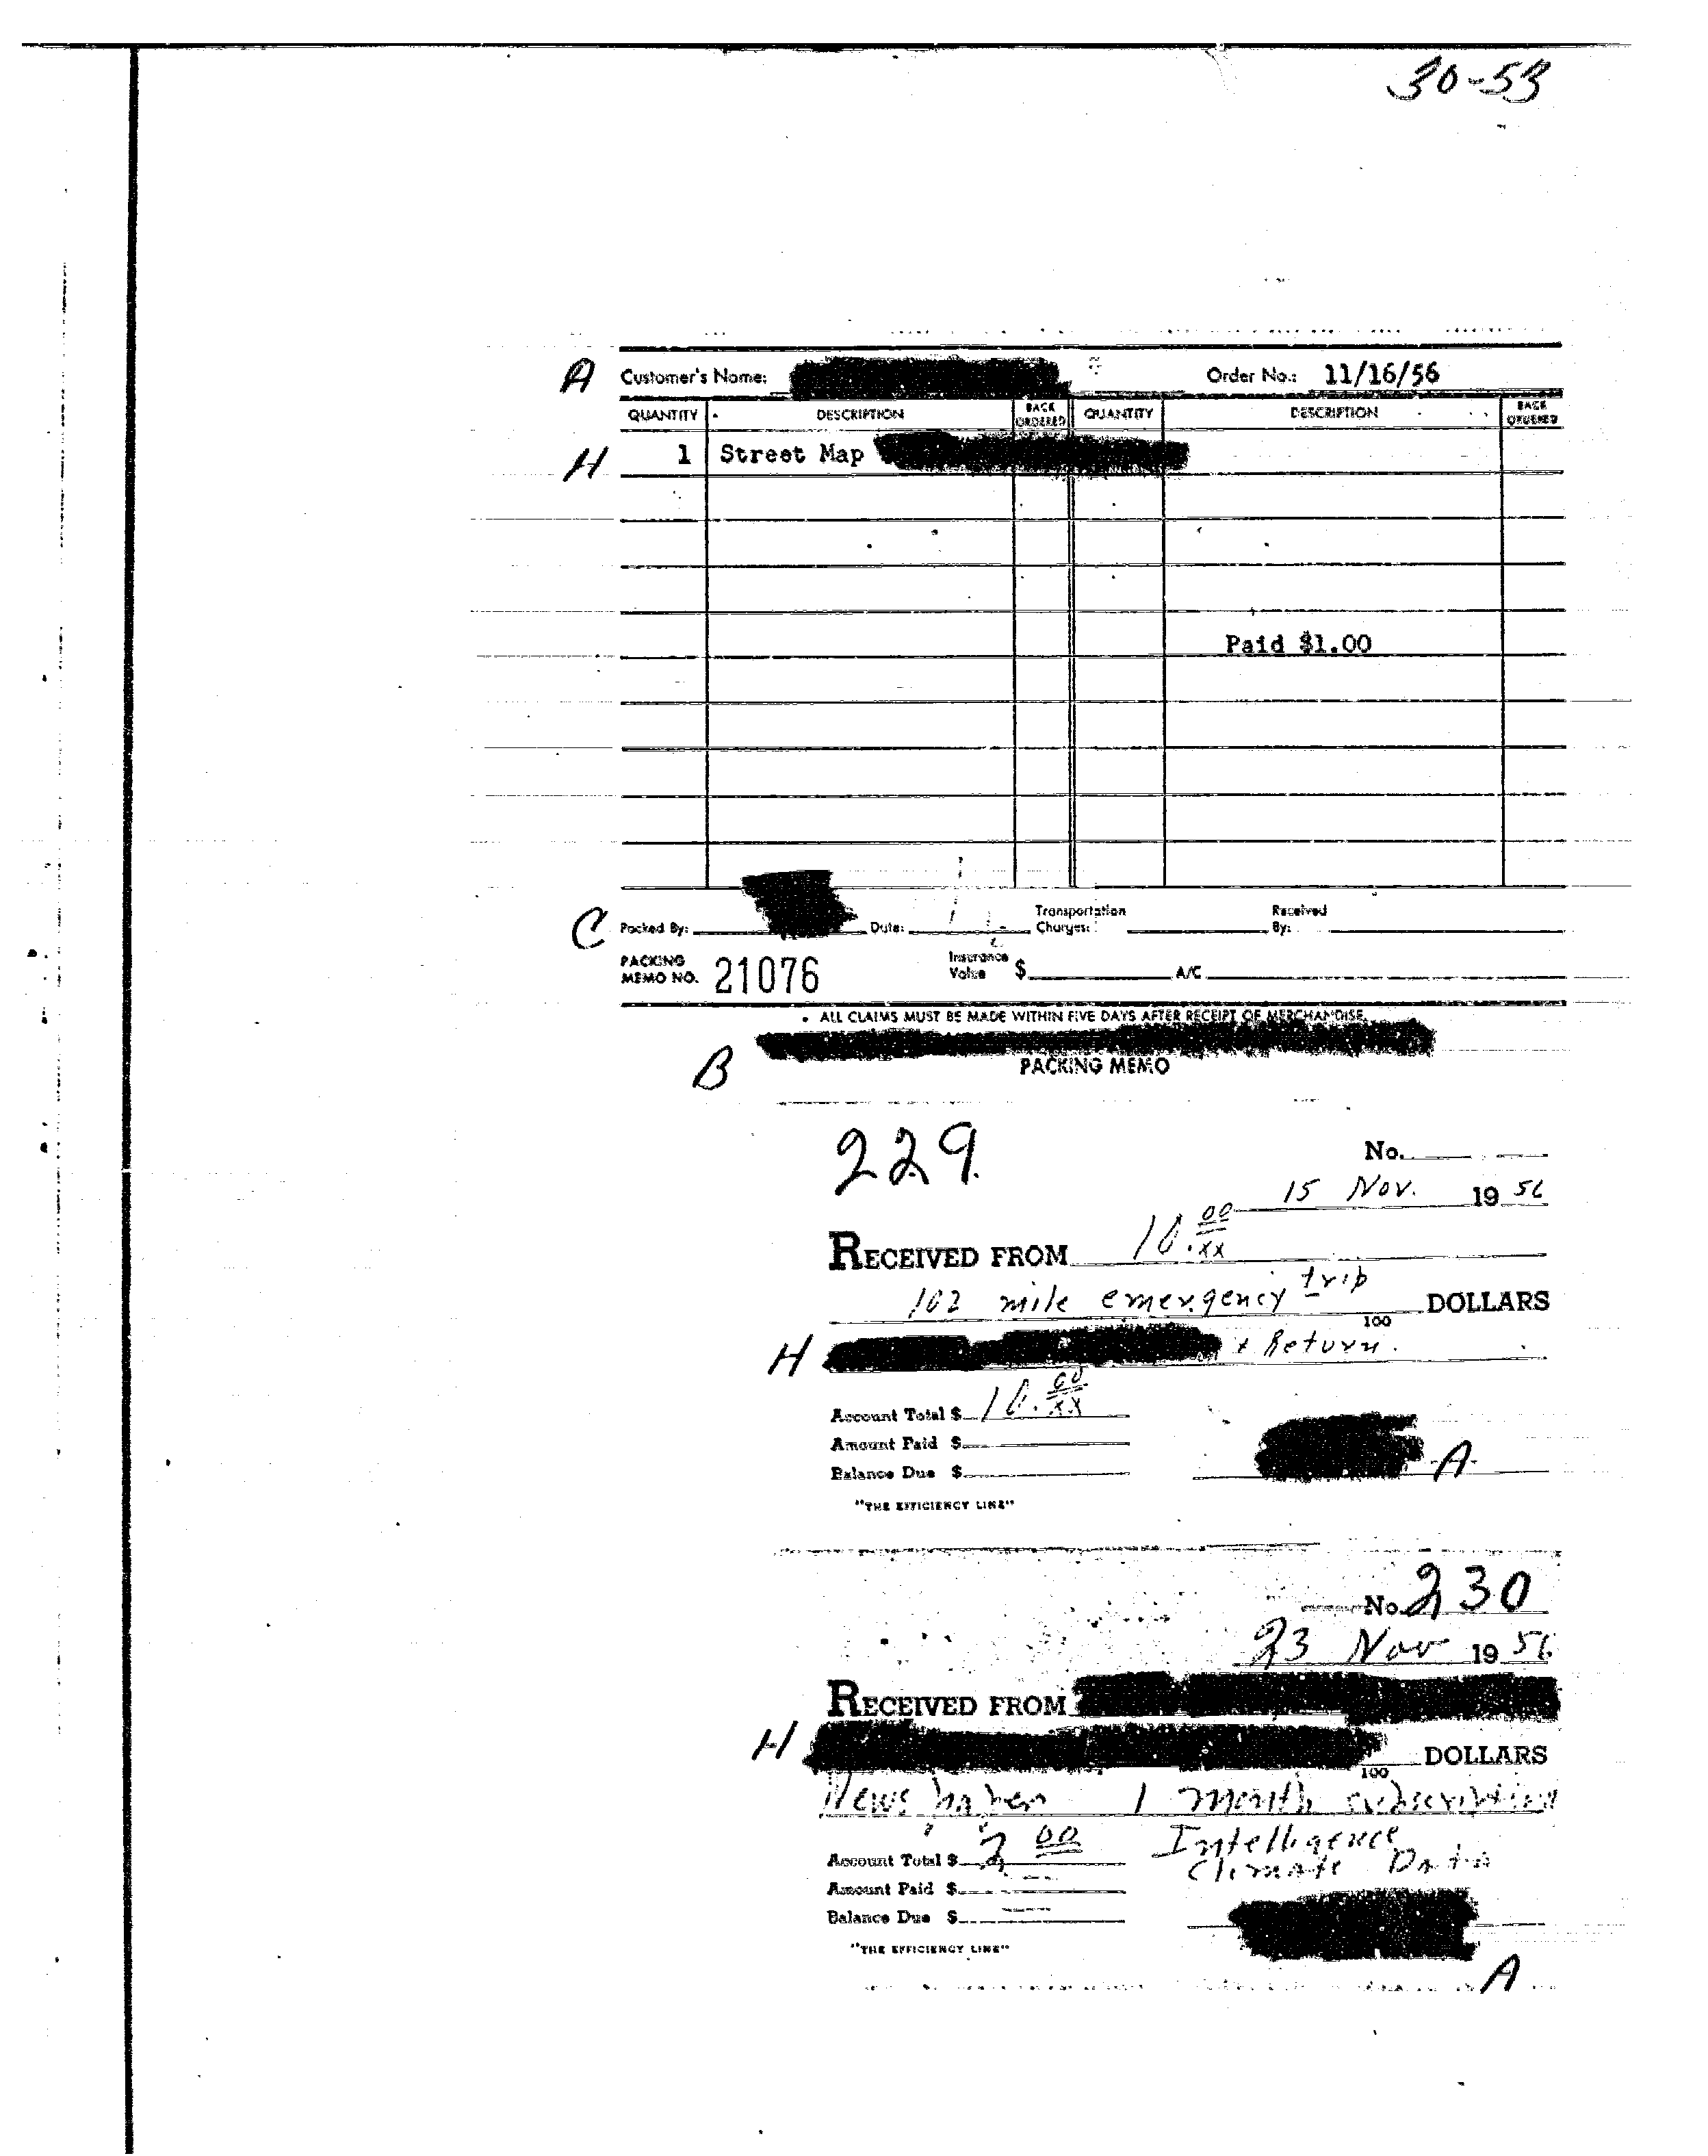 30-53
A Customer's Name: Order No.: 11/16/56
QUANTITY DESCRIPTION BACK ORDERED QUANTITY DESCRIPTION BACK ORDERED
H 1 Street Map
Paid $1.00
C Packed By: Date: Transportation Charges: Received By:
PACKING MEMO NO. 21076 Insurance Value $ A/C
ALL CLAIMS MUST BE MADE WITHIN FIVE DAYS AFTER RECEIPT OF MERCHANDISE.
B PACKING MEMO
229 No.
15 Nov. 19 56
RECEIVED FROM 16.00/xx
102 mile emergency trip 100 DOLLARS
H + Return.
Account Total $ 16.00/xx
Amount Paid $
Balance Due $ A
"THE EFFICIENCY LINE"
No. 230
23 Nov 19 56
RECEIVED FROM
H 100 DOLLARS
News paper 1 month subscription
Account Total $ 2 00 Intelligence
Climate Data
Amount Paid $
Balance Due $
"THE EFFICIENCY LINE"
A